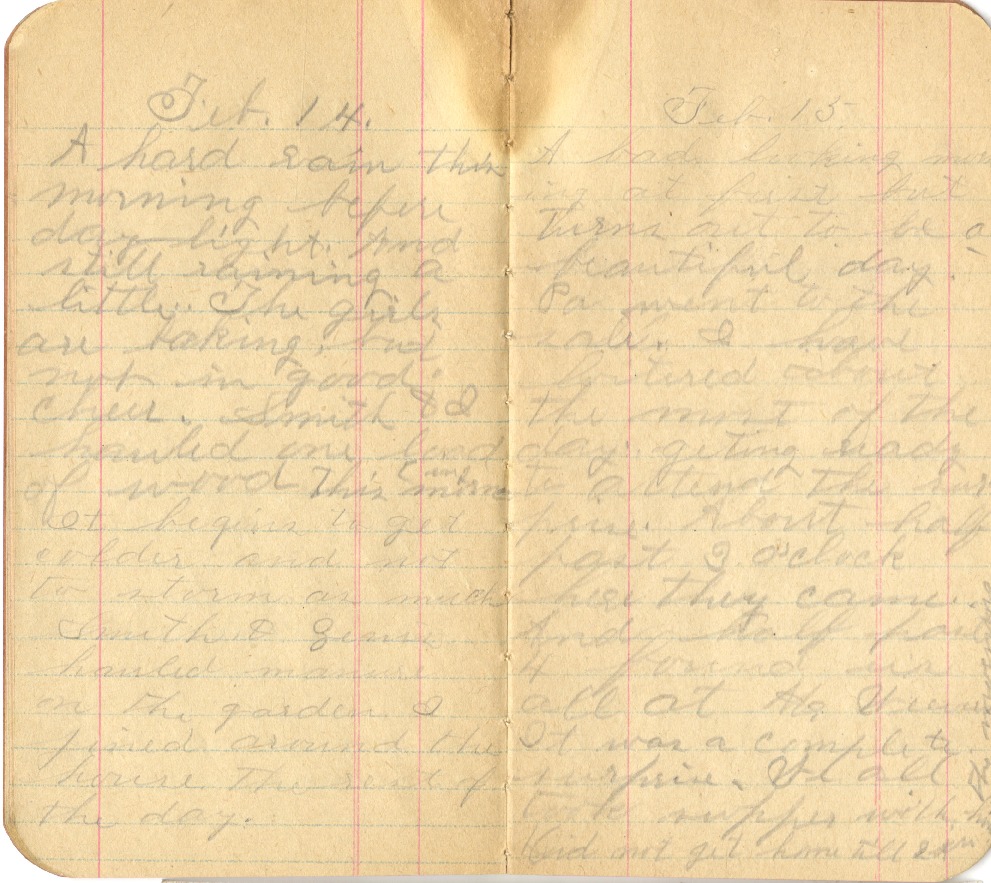 Feb. 14.
A hard rain this
morning before
day light. And
still raining a
little. The girls
are baking, but
not in good
cheer. Smith & I
hauled one load
of wood this morning
It begins to get
colder and not
to storm as much
Smith &
hauled manure
on the garden I
fixed around the
house the rest of
the day.
Feb. 15.
A bad looking morn
ing at first but
turns out to be a
beautiful day.
Pa went to the
sale. I have
loitered about
the most of the
day. geting ready
to attend the sur
prise. About half
past 3 o'clock
here they came.
And half past
4 found us
all at
It was a complete
surprise. We all
took supper with
Did not get home till 2